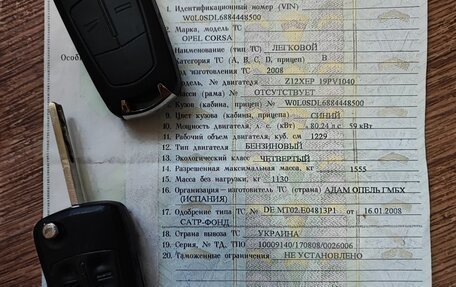 1. Идентификационный номер (VIN)
W0L0SDL6884448500
2. Марка, модель ТС
OPEL CORSA
Наименование (тип ТС) ЛЕГКОВОЙ
Особ
Категория ТС (А, В, С, D, прицеп) B
изготовления ТС 2008
Модель, № двигателя Z12XEP 19PV1040
Шасси (рама) № ОТСУТСТВУЕТ
Кузов (кабина, прицеп) № W0L0SDL6884448500
9. Цвет кузова (кабины, прицепа) СИНИЙ
10. Мощность двигателя, л. с. (кВт) 80.24 л с 59 кВт
11. Рабочий объем двигателя, куб. см 1229
12. Тип двигателя БЕНЗИНОВЫЙ
13. Экологический класс ЧЕТВЕРТЫЙ
14. Разрешенная максимальная масса, кг 1555
15. Масса без нагрузки, кг 1130
16. Организация—изготовитель ТС (страна) АДАМ ОПЕЛЬ ГМБХ
(ИСПАНИЯ)
17. Одобрение типа ТС № DE.MT02.E04813P1 от 16.01.2008
САТР-ФОНД
18. Страна вывоза ТС УКРАИНА
19. Серия, № ТД, ТПО 10009140/170808/0026006
20. Таможенные ограничения НЕ УСТАНОВЛЕНО